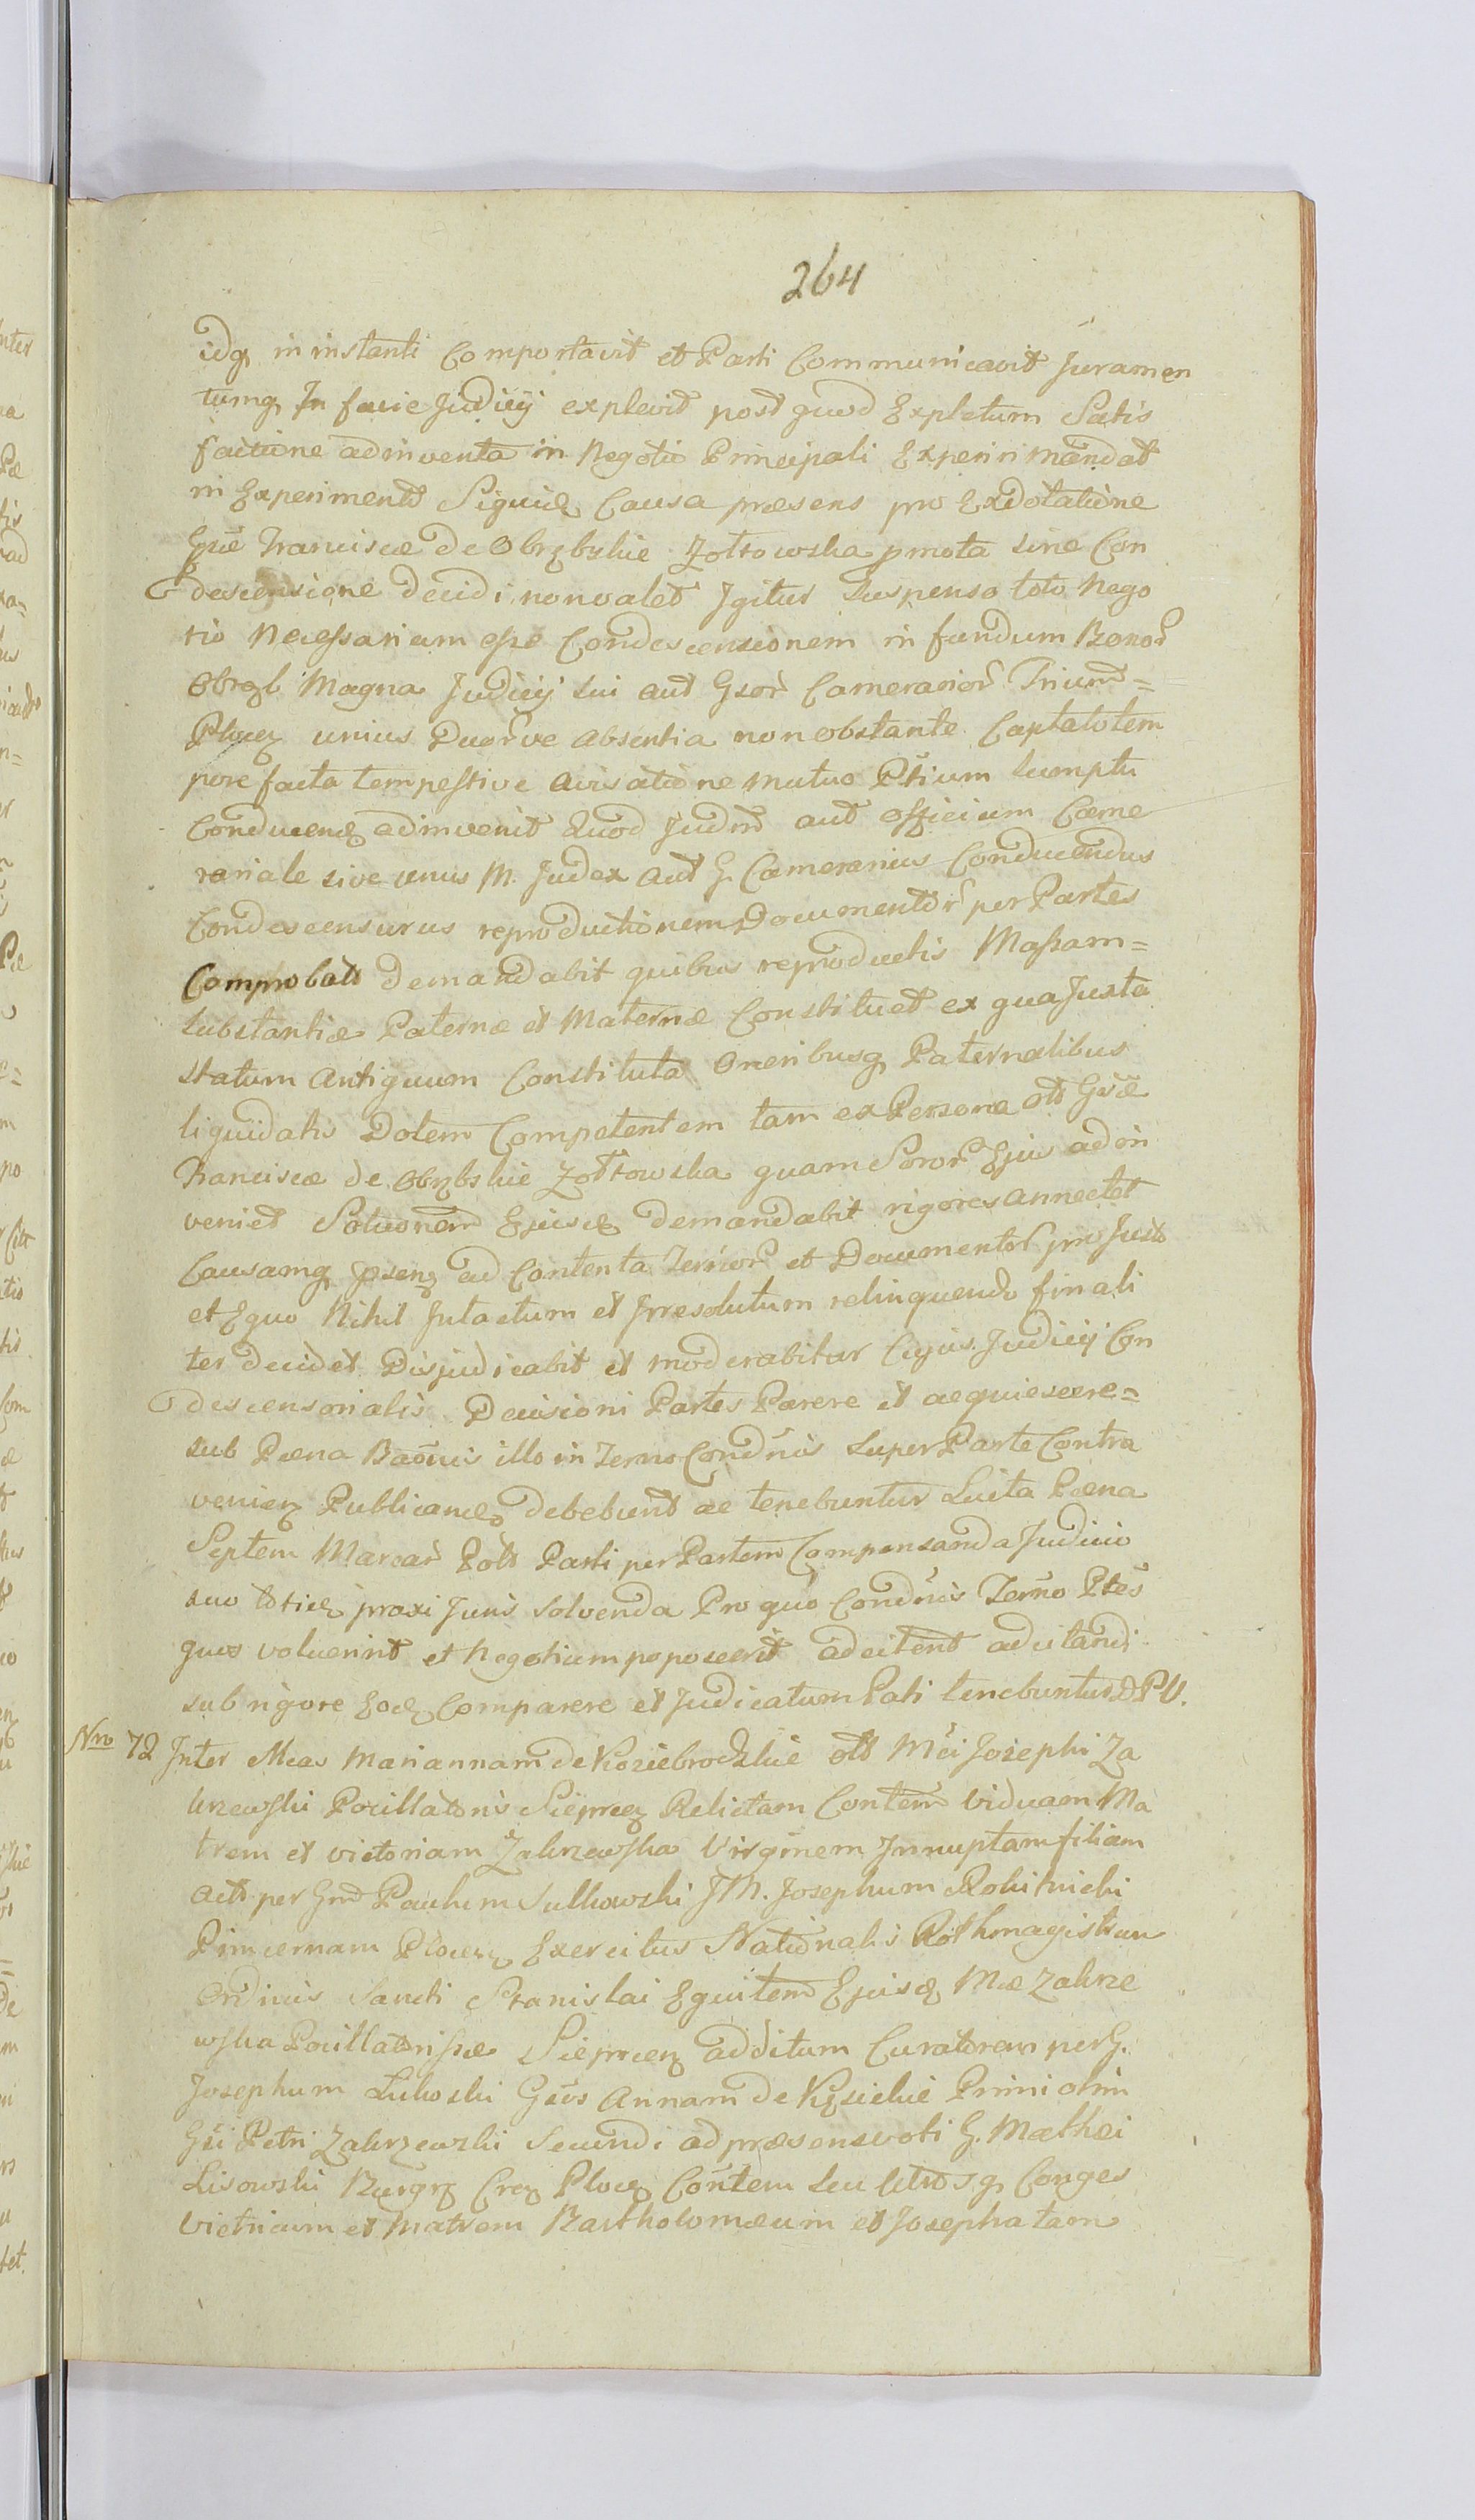 264
idq in instanti Comportavit et Parti Communicavit Juramen
tumq In facie Judicij explevit post quod Expletum Satis
factione adinventa in Negotio Principali Experiri mandat
in Experiment Siquid Causa præsens pro Exdotatione
Gsæ Franciscæ de Obrębskie Zołtowska pmota sine Con
descensione decidi non valet Igitur suspenso toto Nego
tio Necessariam esse Condescensionem in fundum Bonor
Obręb Magna Judicij sui aut Gsor Camerarior Trium=
Plocen unius Duorve absentia non obstante Captato tem
pore facta tempestive avisatione mutuo Ptium sumptu
Conducend adinvenit Quod Judm aut officium Came
rariale sive unus M. Judex aut G. Camerarius Conducendus
Condescensurus reproductionem Documentor per Partes
Comprobat demandabit quibus reproductis Massam=
substantiæ Paternæ et Maternæ Constituet ex qua Juxta
statum Antiquum Constituta Oneribusq Paternalibus
liquidatis Dotem Competentem tam ex Persona olt Gsæ
Franciscæ de Obrębskie Zołtowska quam Soror Ejus adin
veniet Solutionem Ejusd demandabit rigores annectet
Causamq psen ad Contenta Terrior et Documentor pro Justo
et Equo Nihil Intactum et Irresolutum relinquendo finali
ter decidet Disjudicabit et moderabitur Cujus Judicij Con
descensorialis Decisioni Partes Parere et acquiescere=
sub Pœna Banis illo in Termo Condnis super Parte Contra
venien Publicand debebunt ac tenebuntur Luita Pœna
Septem Marcar Polt Parti per Partem Compensanda Judicio
suo toties praxi Juris solvenda Pro quo Condnis Termo Ptes
quos voluerint et Negotium poposcerit adcitent adcitandi
sub rigore Eod Comparere et Judicatum Pati tenebuntur D.P.V.
Nro 72 Inter Mcas Mariannam de Koziebrodzkie olt Mci Josephi Za
krzewski Pocillatoris Sieprcen Relictam Contem viduam Ma
trem et victoriam Zakrzewska Virginem Innuptam filiam
act per Gnd Paulum Sulkowski J M. Josephum Rokitnicki
Pincernam Plocen Exercitus Nationalis Rothmagistrum
Ordinis Sancti Stanislai Equitem Ejusd Mcæ Zakrze
wska Pocillatrissæ Sieprcen additum Curatorem per G.
Josephum Lukoski Gsos Annam de Kęsickie Primi olim
Gsi Petri Zakrzewski Secundi ad præsens voti G. Mathæi
Lisowski Burgr Cren Plocen Contem seu Utrosq Conges
vitricum et Matrem Bartholomæum et Josephatam